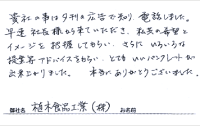 貴社の事は夕刊の広告で知り、電話しました。
早速社長様から来ていただき、私共の希望と
イメージを把握してもらい、さらにいろいろな
提案等アドバイスをもらい、とても いいパンフレットが
出来上がりました。 本当にありがとうございました。
御社名 植木食品工業(株) お名前